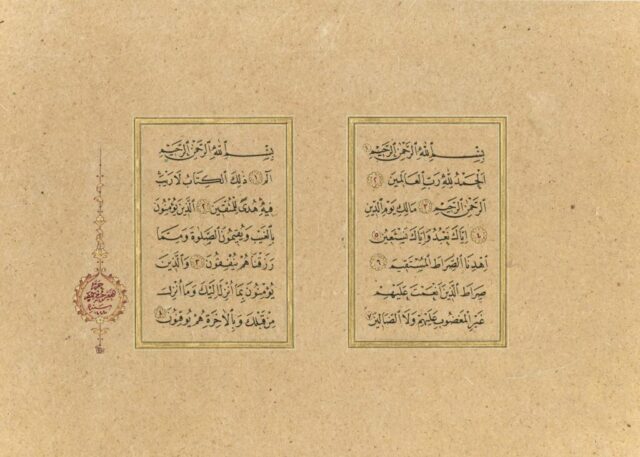 بِسْمِ اللهِ الرَّحْمٰنِ الرَّحِيمِ ١
اَلْحَمْدُ لِلّٰهِ رَبِّ الْعَالَمِينَ ٢
اَلرَّحْمٰنِ الرَّحِيمِ ٣ مَالِكِ يَوْمِ الدِّينِ
٤ اِيَّاكَ نَعْبُدُ وَاِيَّاكَ نَسْتَعِينُ ٥
اِهْدِنَا الصِّرَاطَ الْمُسْتَقِيمَ ٦
صِرَاطَ الَّذِينَ اَنْعَمْتَ عَلَيْهِمْ
غَيْرِ الْمَغْضُوبِ عَلَيْهِمْ وَلَا الضَّالِّينَ ٧
بِسْمِ اللهِ الرَّحْمٰنِ الرَّحِيمِ
الٓمٓ ١ ذٰلِكَ الْكِتَابُ لَا رَيْبَ
فِيهِ هُدًى لِلْمُتَّقِينَ ٢ اَلَّذِينَ يُؤْمِنُونَ
بِالْغَيْبِ وَيُقِيمُونَ الصَّلٰوةَ وَمِمَّا
رَزَقْنَاهُمْ يُنْفِقُونَ ٣ وَالَّذِينَ
يُؤْمِنُونَ بِمَا اُنْزِلَ اِلَيْكَ وَمَا اُنْزِلَ
مِنْ قَبْلِكَ وَبِالْاٰخِرَةِ هُمْ يُوقِنُونَ ٤